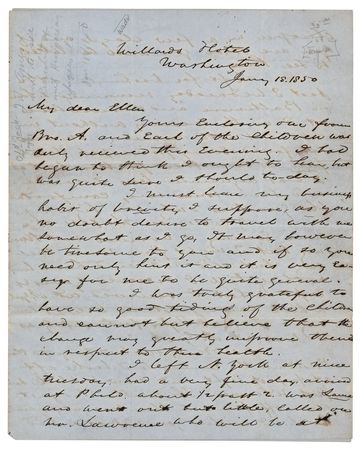 Willards Hotel
Washington
Jany 18. 1850
My dear Ellen
Yours Enclosing one from
Bro. A. and Each of the Children was
duly received this Evening. I had
began to think I ought to hear but
was quite sure I should to day.
I must leave my business
habit of brevity I suppose, as you
no doubt desire to travel with me
somewhat as I go, It may however
be tiresome to you and if so you
need only hint it and it is very ea-
sy for me to be quite general.
I was truly grateful to
have so good tidings of the Children
and cannot but believe that the
change may greatly improve them
in respect to their health.
I left N. York at nine
tuesday, had a very fine day, arrived
at Phila about past 2. was
and went out but little, called on
Mr. Lawrence who will be at